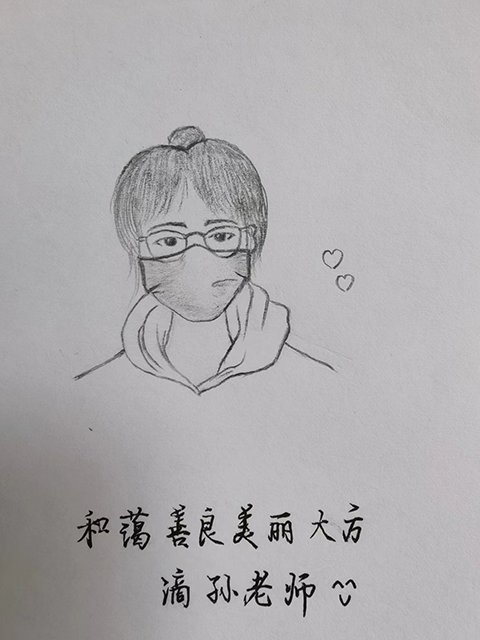 和蔼善良美丽大方
滴孙老师